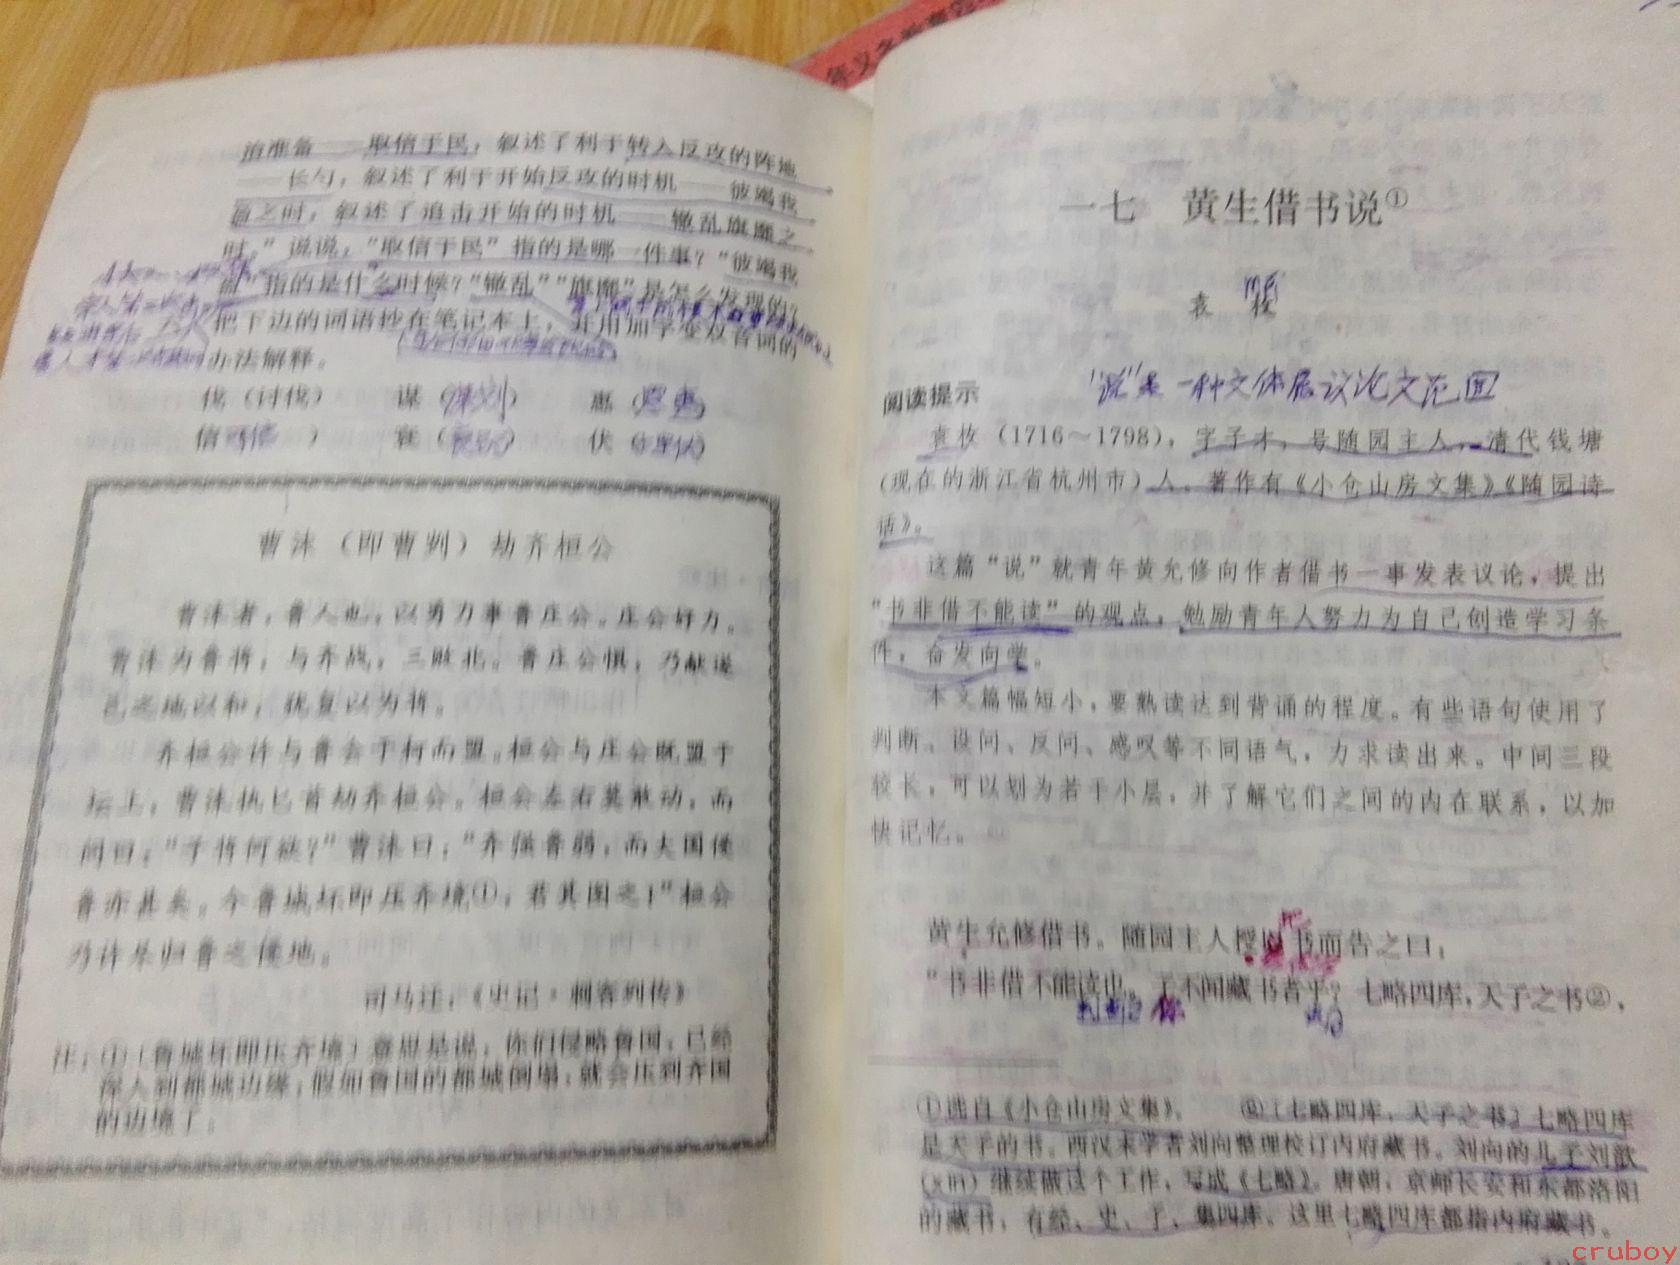 治准备——取信于民，叙述了利于转入反攻的阵地
——长勺，叙述了利于开始反攻的时机——彼竭我
盈之时，叙述了追击开始的时机——辙乱旗靡之
时。”说说，“取信于民”指的是哪一件事？“彼竭我
盈”指的是什么时候？“辙乱”“旗靡”是怎么发现的？
把下边的词语抄在笔记本上，并用加字变双音词的
办法解释。
伐（讨伐） 谋（谋划） 惠（恩惠）
信 ） 衰（ ） 伏（埋伏）
曹沫（即曹刿）劫齐桓公
曹沫者，鲁人也，以勇力事鲁庄公。庄公好力。
曹沫为鲁将，与齐战，三败北。鲁庄公惧，乃献遂
邑之地以和，犹复以为将。
齐桓公许与鲁会于柯而盟。桓公与庄公既盟于
坛上，曹沫执匕首劫齐桓公。桓公左右莫敢动，而
问曰：“子将何欲？”曹沫曰：“齐强鲁弱，而大国侵
鲁亦甚矣。今鲁城坏即压齐境①，君其图之！”桓公
乃许尽归鲁之侵地。
司马迁：《史记·刺客列传》
注：①〔鲁城坏即压齐境〕意思是说，你们侵略鲁国，已经
深入到都城边缘；假如鲁国的都城倒塌，就会压到齐国
的边境了。
年义务教育
一七 黄生借书说①
袁 枚
阅读提示
“说”是一种文体属议论文范围
袁枚（1716～1798），字子才，号随园主人，清代钱塘
（现在的浙江省杭州市）人。著作有《小仓山房文集》《随园诗
话》。
这篇“说”就青年黄允修向作者借书一事发表议论，提出
“书非借不能读”的观点，勉励青年人努力为自己创造学习条
件，奋发向学。
本文篇幅短小，要熟读达到背诵的程度。有些语句使用了
判断、设问、反问、感叹等不同语气，力求读出来。中间三段
较长，可以划为若干小层，并了解它们之间的内在联系，以加
快记忆。
黄生允修借书。随园主人授以书而告之曰：
“书非借不能读也。子不闻藏书者乎？七略四库，天子之书②，
①选自《小仓山房文集》。 ②〔七略四库，天子之书〕七略四库
是天子的书。西汉末学者刘向整理校订内府藏书。刘向的儿子刘歆
（xīn）继续做这个工作，写成《七略》。唐朝，京师长安和东都洛阳
的藏书，有经、史、子、集四库。这里七略四库都指内府藏书。
cruboy